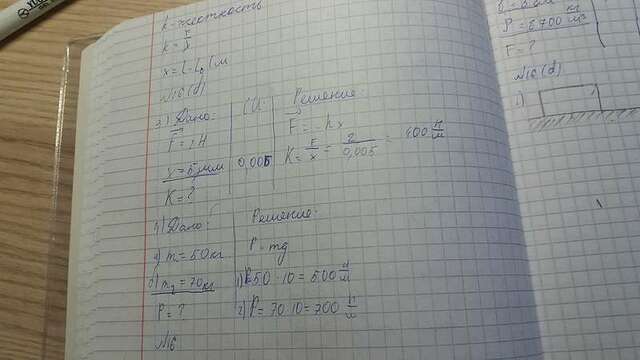 k - жесткость
k = F/x
x = L - L₀ (м
№16(d)
3.) Дано:
F = 2H
x = 5 мм
K = ?
СИ:
0,005
Решение:
F = -kx
K = F/x = 2/0,005 = 400 H/м
3) Дано:
1) m = 50 кг
2) m₂ = 70 кг
P = ?
№16
Решение:
P = mg
1) P = 50 · 10 = 500 H/м
2) P = 70 · 10 = 700 H/м
F = ?
№16(d)
1)